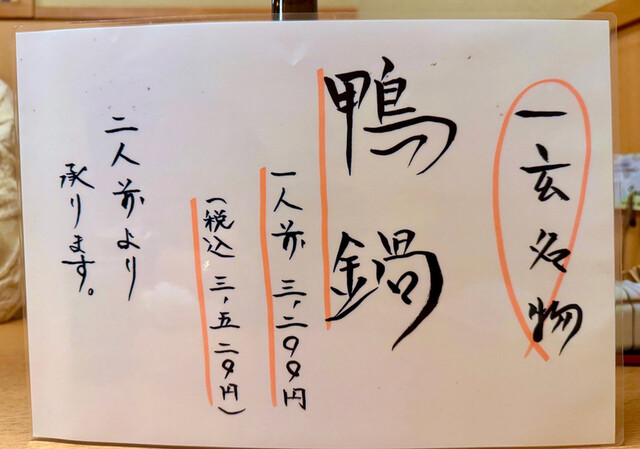 一玄名物
鴨鍋
一人前 三,二〇〇円
(税込 三,五二〇円)
二人前より
承ります。